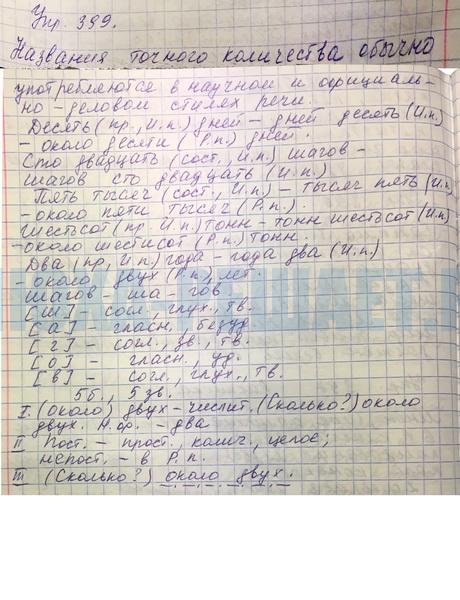 Упр. 399.
Названия точного количества обычно
употребляются в научном и официаль-
но-деловом стилях речи.
Десять (пр., И.п.) дней - дней десять (И.п.)
- около десяти (Р.п.) дней.
Сто двадцать (сост., И.п.) шагов -
шагов сто двадцать (И.п.)
Пять тысяч (сост., И.п.) - тысяч пять (И.п.)
- около пяти тысяч (Р.п.).
Шестьсот (пр. И.п.) тонн - тонн шестьсот (И.п.)
- около шестисот (Р.п.) тонн.
Два (пр, И.п.) года - года два (И.п.)
- около двух (Р.п.) лет.
Шагов - ша - гов
[ш] - согл., глух., тв.
[а] - гласн., безуд.
[г] - согл., зв., тв.
[о] - гласн., уд.
[в] - согл., глух., тв.
5б., 5 зв.
I. (около) двух - числит. (Сколько?) около
двух. Н.ф. - два
II Пост. - прост., колич., целое;
непост. - в Р.п.
III (Сколько?) около двух.